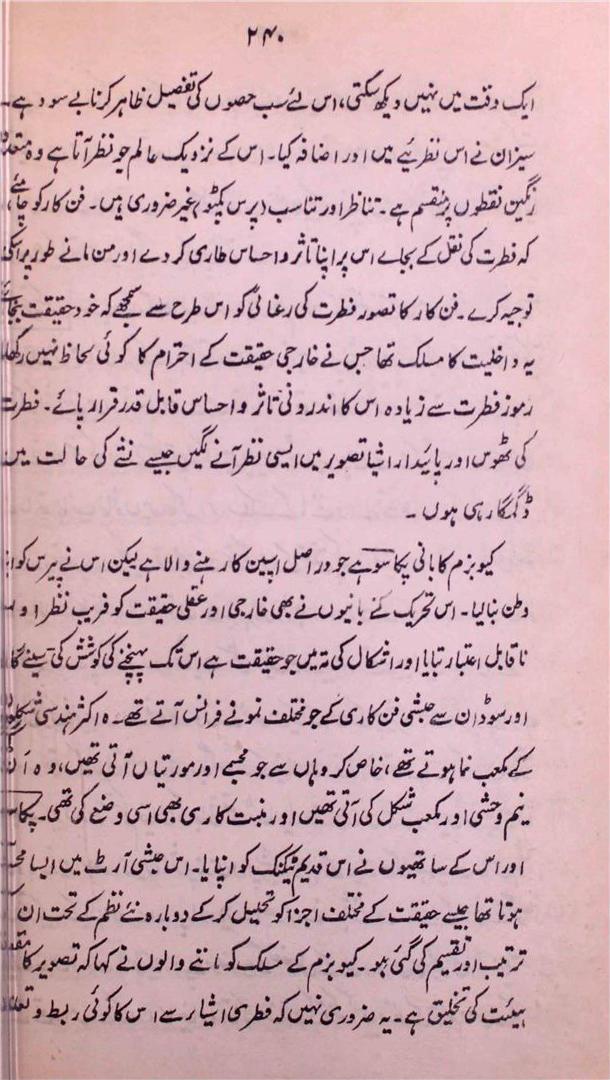 ۲۴۰
ایک وقت میں نہیں دیکھ سکتی، اس لئے سب حصوں کی تفصیل ظاہر کرنا بے سود ہے۔
سیزان نے اس نظریئے میں اور اضافہ کیا۔ اس کے نزدیک عالم جو نظر آتا ہے وہ
رنگین نقطوں پر منقسم ہے۔ تناظر اور تناسب (پرس پکٹو) غیر ضروری ہیں۔ فن کار کو چاہئے
کہ فطرت کی نقل کے بجاے اس پر اپنا تاثر و احساس طاری کر دے اور من مانے طور پر اسکی
توجیہ کرے۔ فن کار کا تصور فطرت کی رعنائی کو اس طرح سے سمجھے کہ خود حقیقت بنجائے
یہ داخلیت کا مسلک تھا جس نے خارجی حقیقت کے احترام کا کوئی لحاظ نہیں رکھا۔
رموز فطرت سے زیادہ اس کا اندرونی تاثر و احساس قابل قدر قرار پائے۔ فطرت
کی ٹھوس اور پائیدار اشیا تصویر میں ایسی نظر آنے لگیں جیسے نشے کی حالت میں
ڈگمگا رہی ہوں۔
کیوبزم کا بانی پکاسو ہے جو در اصل اسپین کا رہنے والا ہے لیکن اس نے پیرس کو
وطن بنالیا۔ اس تحریک کے بانیوں نے بھی خارجی اور عقلی حقیقت کو فریب نظر اور
نا قابل اعتبار بتایا اور اشکال کی تہ میں جو حقیقت ہے اس تک پہنچنے کی کوشش کی۔
اور سوڈان سے حبشی فن کاری کے جو مختلف نمونے فرانس آتے تھے۔ وہ اکثر ہندسی شکلوں
کے مکعب نما ہوتے تھے، خاص کر وہاں سے جو مجسمے اور مورتیاں آتی تھیں، وہ ان
نیم وحشی اور مکعب شکل کی آتی تھیں اور منبت کاری بھی اسی وضع کی تھی۔
اور اس کے ساتھیوں نے اس قدیم ٹیکنک کو اپنایا۔ اس حبشی آرٹ میں ایسا
ہوتا تھا جیسے حقیقت کے مختلف اجزا کو تحلیل کر کے دوبارہ نئے نظم کے تحت ان
ترتیب اور تقسیم کی گئی ہو۔ کیوبزم کے مسلک کو ماننے والوں نے کہا کہ تصویر کا
ہیئت کی تخلیق ہے۔ یہ ضروری نہیں کہ فطری اشیار سے اس کا کوئی ربط و